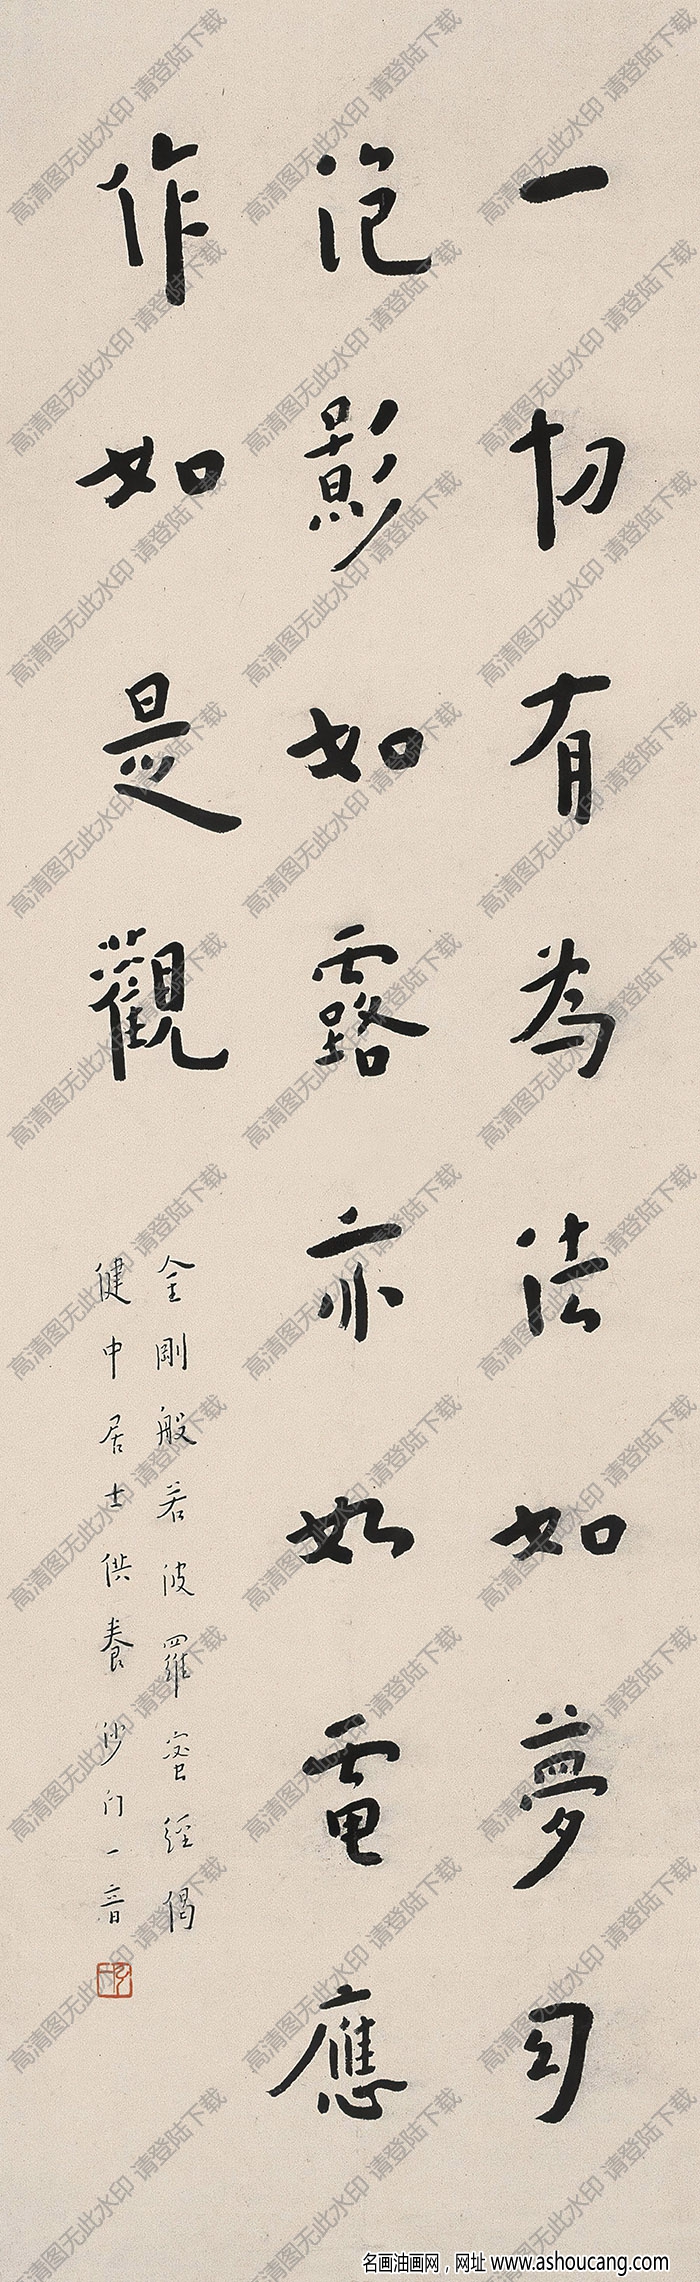 一切有為法如夢幻
泡影如露亦如電應
作如是觀
金剛般若波羅蜜經偈
健中居士供養沙門一音
高清图无此水印 请登陆下载
名画油画网，网址 www.ashoucang.com